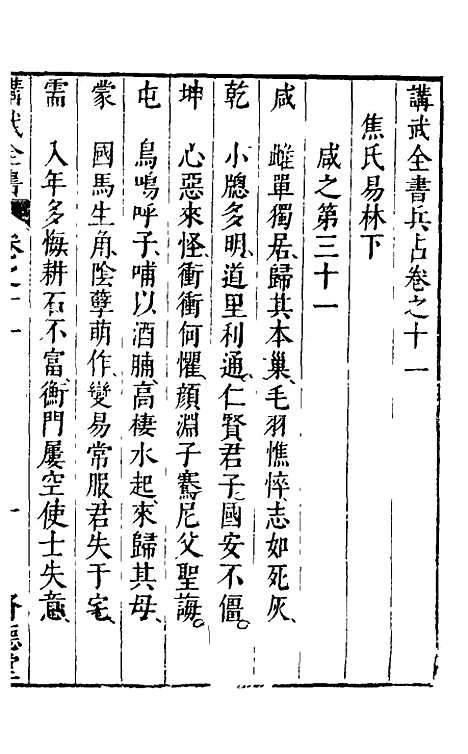 講武全書兵占卷之十一
焦氏易林下
咸之第三十一
咸　雌單獨居、歸其本巢、毛羽憔悴、志如死灰、
乾　小牕多明、道里利通、仁賢君子、國安不僵。
坤　心惡來怪、衝衝何懼、顏淵子騫、尼父聖誨。
屯　鳥鳴呼子、哺以酒脯、高棲水起、來歸其母、
蒙　國馬生角、陰孽萌作、變易常服、君失于宅、
需　入年多悔、耕石不富、衡門屢空、使士失意、
講武全書　卷之十一　一